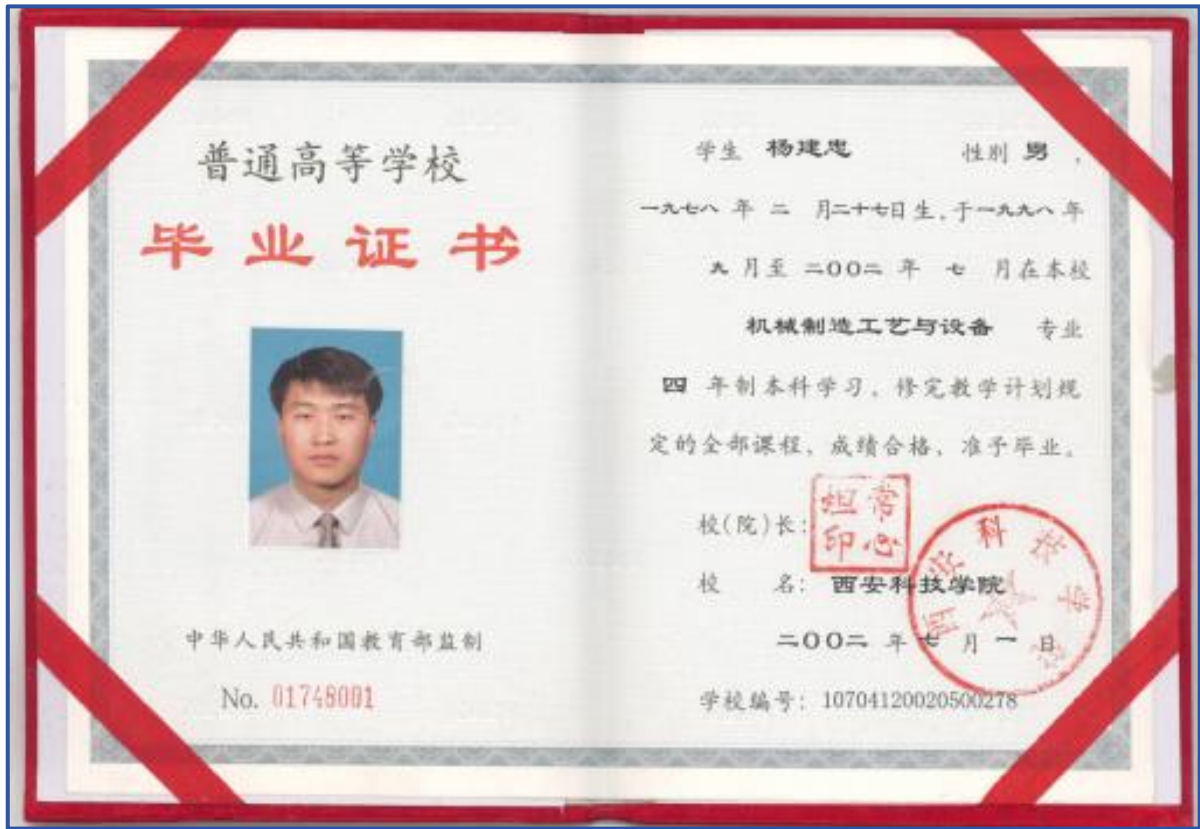 普通高等学校
毕业证书
中华人民共和国教育部监制
No. 01748001
学生 杨建忠 性别 男，
一九七八 年 二 月二十七日生，于一九九八 年
九 月至 二〇〇二 年 七 月在本校
机械制造工艺与设备 专业
四 年制本科学习，修完教学计划规
定的全部课程，成绩合格，准予毕业。
校(院)长：
常心坦印
校 名：西安科技学院
西安科技学院
二〇〇二 年 七 月 一 日
学校编号：10704120020500278